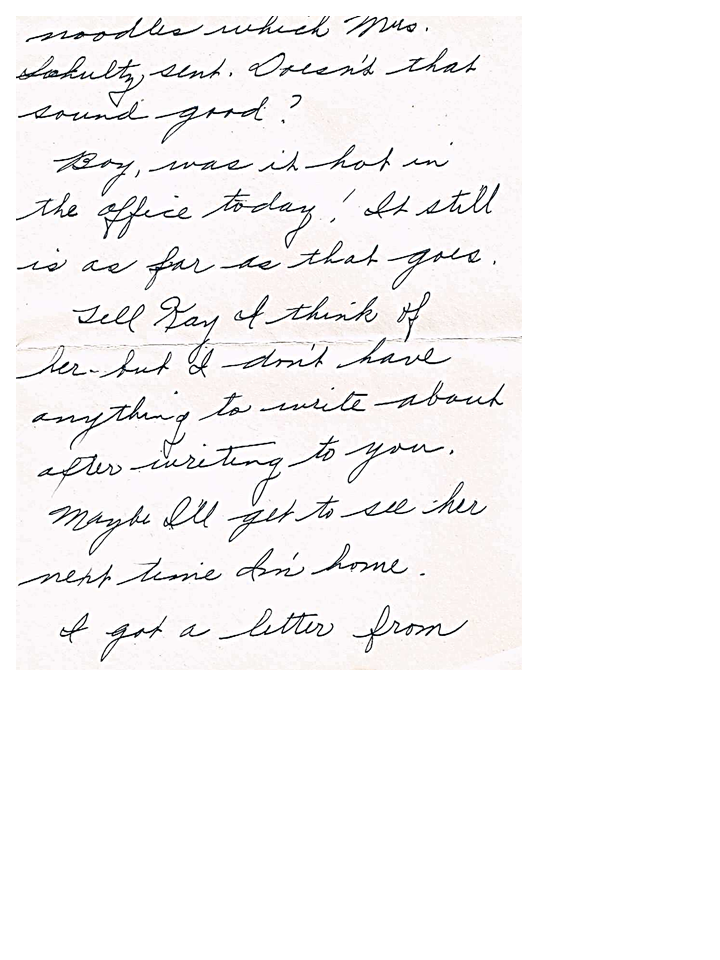 noodles which Mrs.
Schultz sent. Doesn't that
sound good?
Boy, was it hot in
the office today! It still
is as far as that goes.
Tell Kay I think of
her - but I don't have
anything to write about
after writing to you.
Maybe I'll get to see her
next time I'm home.
I got a letter from